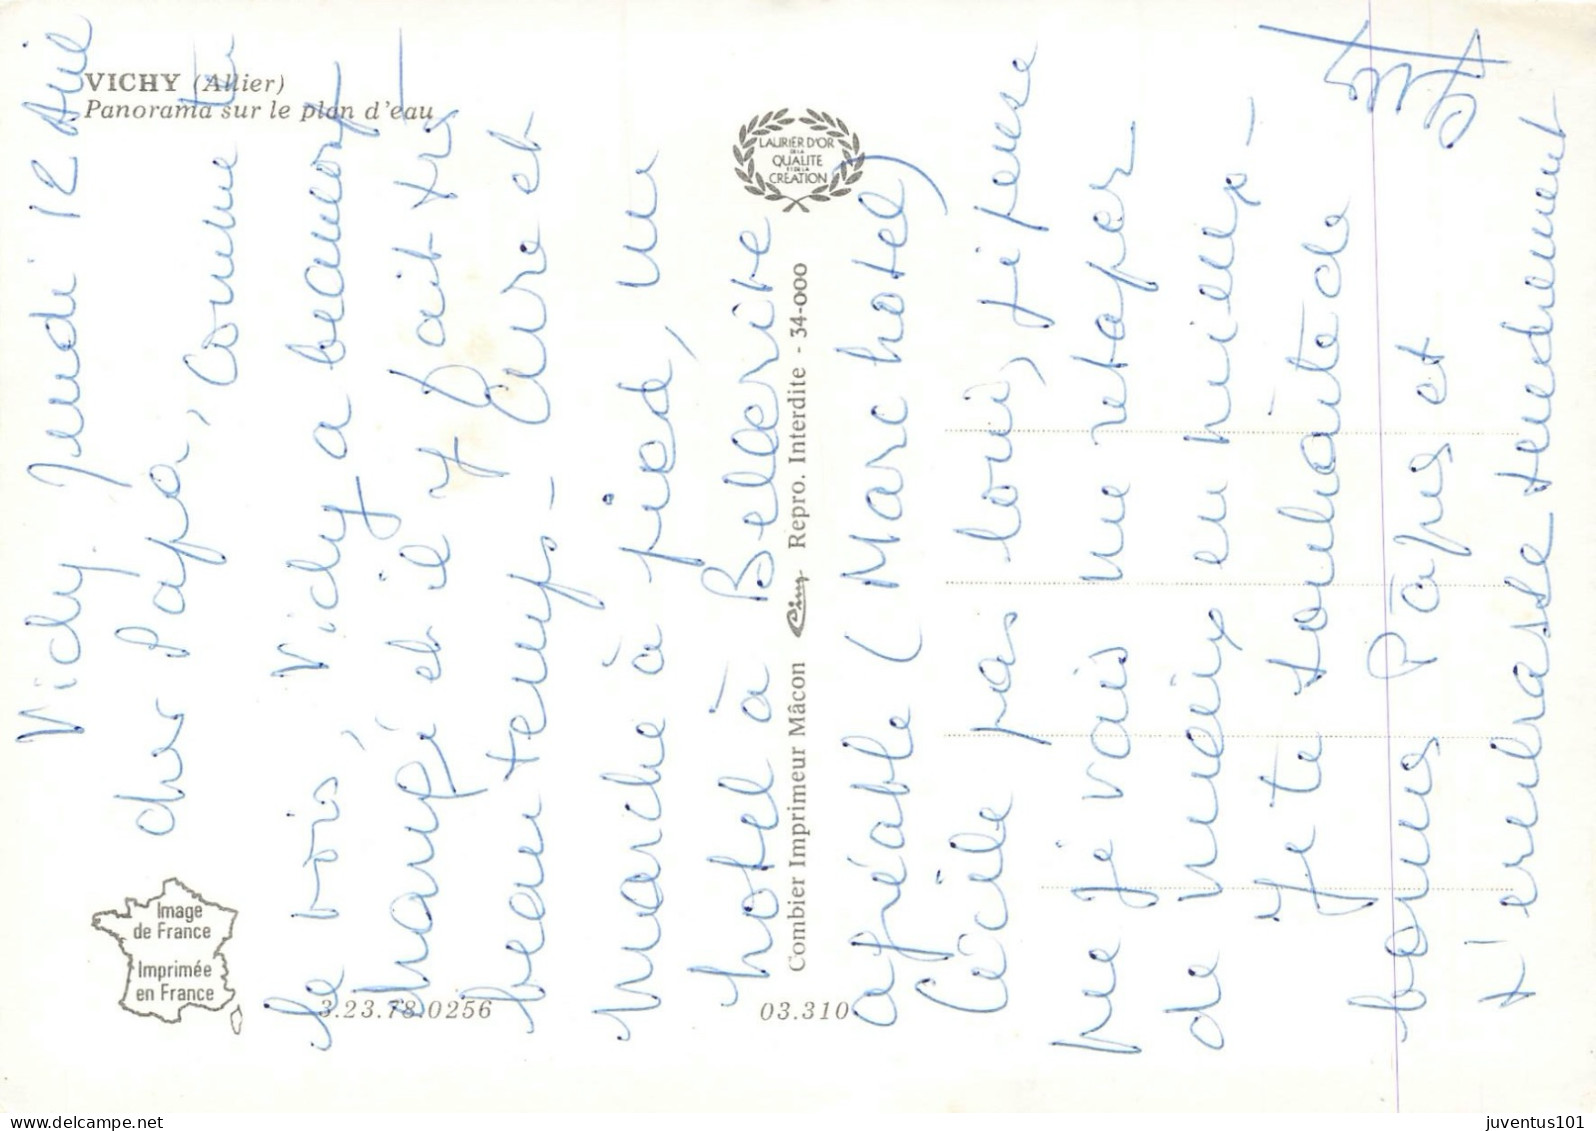 VICHY (Allier)
Panorama sur le plan d'eau
LAURIER D'OR
DE LA
QUALITE
ET DE LA
CREATION
Image
de France
Imprimée
en France
3.23.78.0256
03.310
Combier Imprimeur Mâcon Repro. Interdite - 34-000
Vichy Jeudi 12 Avril
cher Papa, Comme tu
le vois, Vichy a beaucoup
changé et il y fait très
beau temps -
marche à pied, un
hotel à Bellerive
agréable (Marc hotel)
Cécile pas loin, je pense
que je vais me retaper
de mieux en mieux -
Je te souhaite de
bonnes Pâques et
t'embrasse tendrement
juventus101